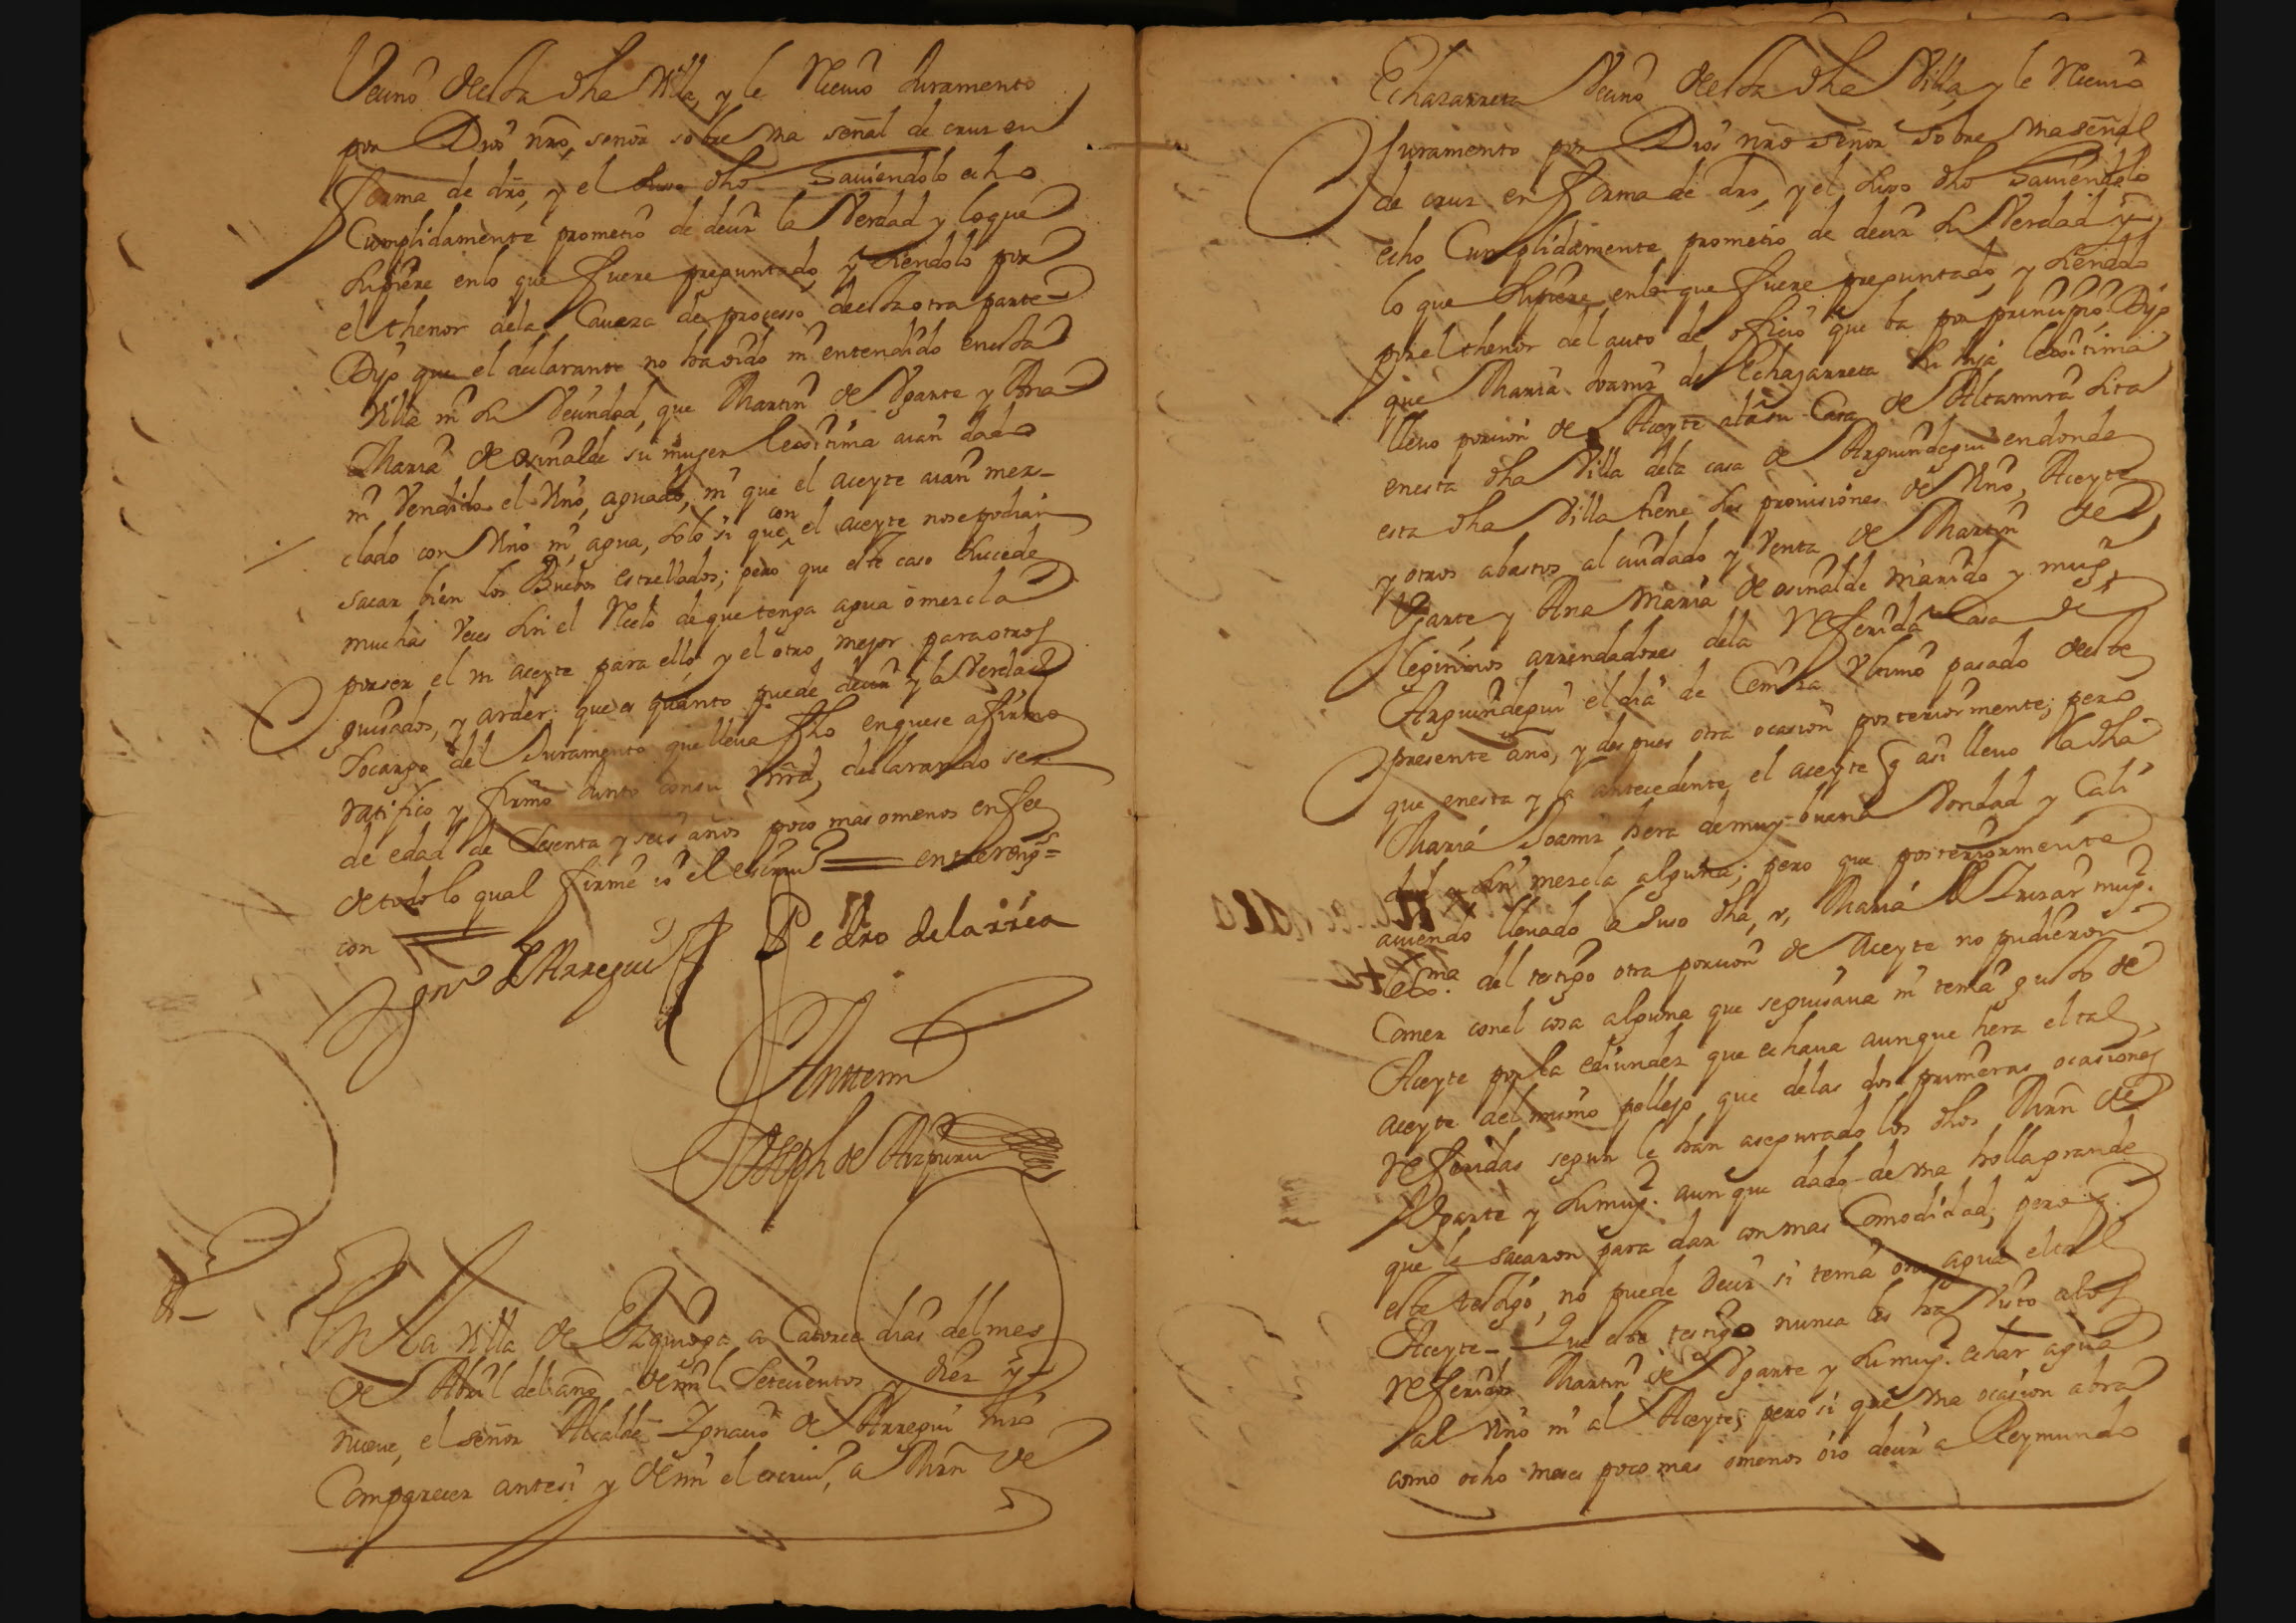 Vecino de esta dha Villa, y le Reciuio Juramento
por Dios nrō señor sobre vna señal de cruz en
forma de drō, y el suso dho hauiendolo echo
Cumplidamente prometio de decir la Verdad y lo que
supiere en lo que fuere preguntado, y siendolo por
el thenor de la Caueza de processo de esta otra parte
Dijo que el declarante no ha oido ni entendido en esta
Villa ni su Vecindad, que Martin de Vgarte y Ana
Maria de osinalde su mujer lexitima aian dado
ni Vendido el Vino, aguado, ni que el aceyte aian mez-
clado con Vino ni agua, solo si que con el aceyte no se podian
sacar bien los Huebos estrellados; pero que este caso sucede
muchas Veces sin el Recelo de que tenga agua o mezcla
por ser el vn aceyte para ello, y el otro mejor para otros
guisados, y arder: que es quanto puede decir y la Verdad
so cargo del Juramento que lleua fho en que se afirmo
ratifico y firmo Junto con su mrd, declarando ser
de edad de sesenta y seis años poco mas o menos en fee
de todo lo qual firmé io el escriuo = entre rengs =
con =
Ignº de Arregui Pedro de larrea
Antemi
Joseph de Aizpuru
En la Villa de Ezquioga a Catorce dias del mes
de Abril del año de mil Setecientos y diez y
nueue, el señor Alcalde Ignacio de Arregui hizo
Comparecer ante si y de mi el escriuo, a Mrn de
Echazarreta Vecino de esta dha Villa, y le Reciuio
Juramento por Dios nrō señor sobre vna señal
de cruz en forma de drō, y el suso dho hauiendolo
echo Cumplidamente prometio de decir la Verdad y
lo que supiere en lo que fuere preguntado, y siendo
por el thenor del auto de oficio que ba por principio Dijo
que Maria Joaniz de Echazarreta su hija lexitima
lleuo porcion de Aceyte a la su Casa de Altamira sita
en esta dha Villa de la casa de Arguindegui en donde
esta dha Villa tiene sus prouisiones de Vino, Aceyte
y otros abastos al cuidado y Venta de Martin de
Vgarte y Ana Maria de osinalde marido y mugr
legitimos arrendadores de la Referida Casa de
Arguindegui el dia de Ceniza Vltimo pasado de este
presente año, y despues otra ocasion posteriormente; pero
que en esta y la antecedente el aceyte q asi lleuo la dha
Maria Joaniz hera de muy buena Vondad y Cali
dad y sin mezcla alguna; pero que posteriormente
auiendo lleuado la suso dha, y, Maria de Irizar mugr
lexma. del testigo otra porcion de Aceyte no pudieron
Comer con el cosa alguna que se guisaua ni tenia gusto de
Aceyte por la ediundez que echaua aunque hera el tal
aceyte del mismo pellejo que de las dos primeras ocasiones
referidas segun le han asegurado los dhos Mrn de
Vgarte y su mugr. aunque dado de vna holla grande
que le sacaron para dar con mas Comodidad; pero q
este testigo, no puede decir si tenia o no agua el tal
Aceyte – Que este testigo nunca les ha Visto a los
referidos Martin de Vgarte y su mugr. echar agua
al Vino ni al Aceyte; pero si que vna ocasion abra
como ocho meses poco mas o menos oio decir a Reymundo